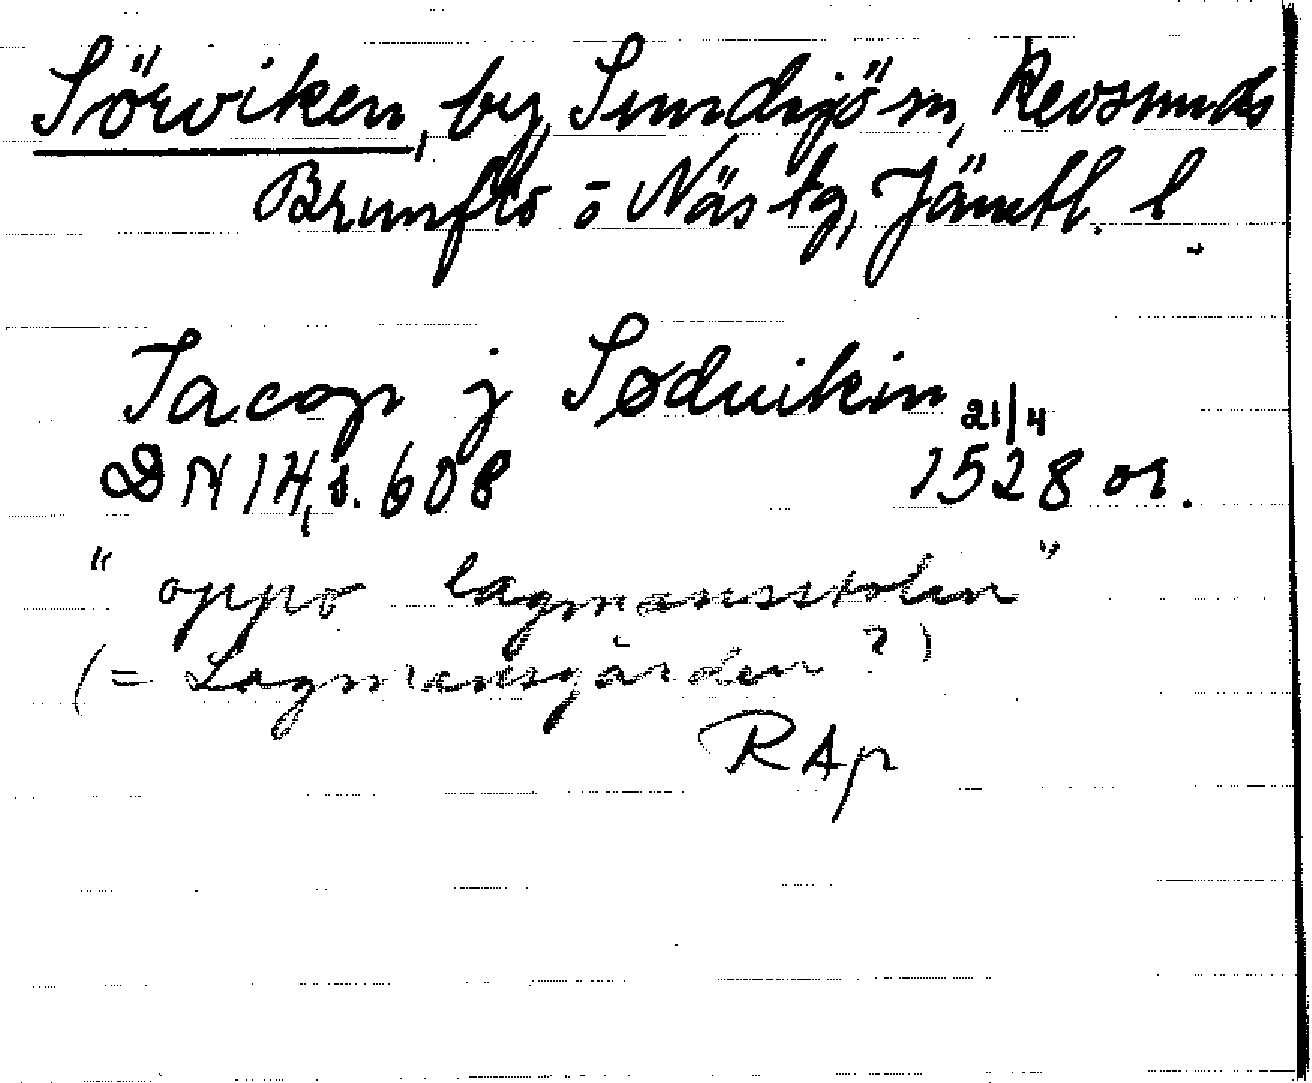 Sörviken, by, Sundsjö sn, Revsunds
Brunflo o Näs tg, Jämtl. l
Jacop j Sødvikin
21/4
DN 14, s. 608 1528 or.
" oppo lagmansstolen "
(= Lagmansgården ?)
RAp